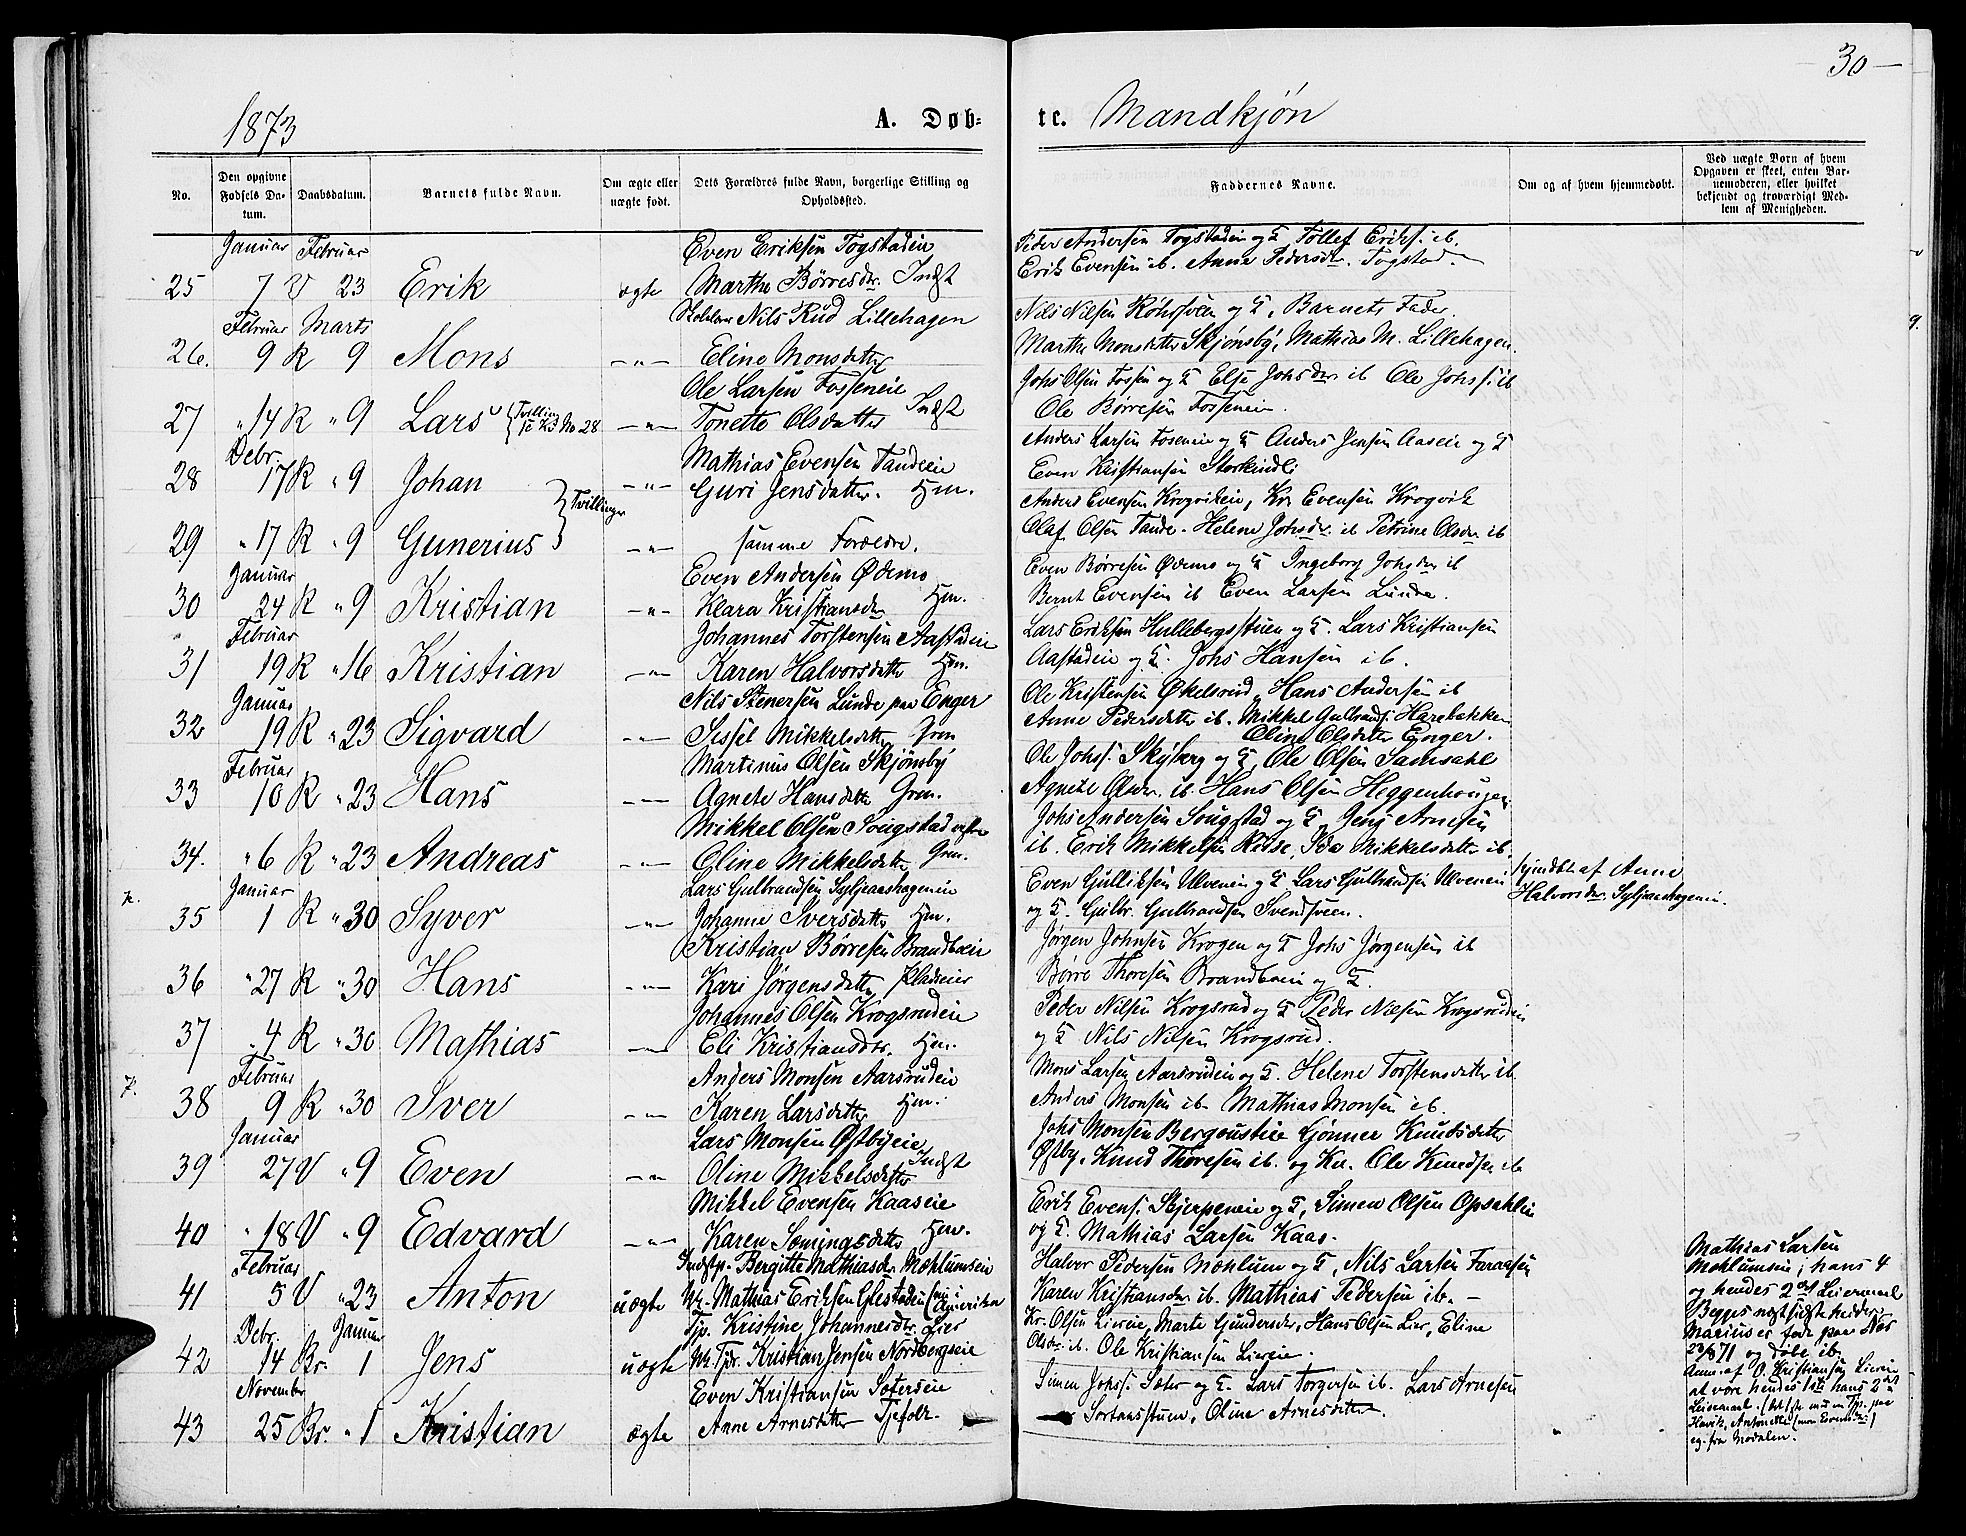 30
1873
A. Døb-
te. Mandkjøn
No.
Den opgivne Fødsels Da-tum.
Daabsdatum.
Barnets fulde Navn.
Om ægte eller uægte født.
Dets Forældres fulde Navn, borgerlige Stilling og Opholdssted.
Faddernes Navne.
Om og af hvem hjemmedøbt.
Ved uægte Børn af hvem Opgaven er skeet, enten Bar-nemoderen, eller hvilket bekjendt og troværdigt Med-lem af Menigheden.
Januar Februar Even Eriksen Togstadeie Peder Andersen Togstadeie og K Tollef Eriks. ib.
25 7 V 23 Erik ægte Marthe Børresdr. Indst Erik Evensen ib. Anne Pedersdr. Togstad
Februar Marts Nils Rud Lillehagen Nils Nilsen og K, Barnets Fader.
26. 9 K 9 Mons -"- Eline Monsdatter Marthe Monsdatter Skjønsby, Mathias M. Lillehagen.
Ole Larsen Fosseneie Johs Olsen Fossen og K Else Johsdr ib Ole Johss. ib
27 " 14 K " 9 Lars {Tvilling se No 28 -"- Tonette Olsdatter Indst Ole Børresen Fosseneie.
Debr. Mathias Evensen Tandeeie Anders Larsen Foseneie og K Anders Jensen Aaseie og K
28 17 K " 9 Johan -"- Guri Jensdatter. Hm. Even Kristiansen
} Tvillinger Anders Evensen Krogvikeie, Kr. Evensen Krogvik
29 " 17 K " 9 Gunerius -"- samme Forældre. Olaf Olsen Tande. Helene Johsdr ib Petrine Olsdr ib
Januar Even Andersen Ødemo Even Børresen Ødemo og K Ingeborg Johsdr ib
30 24 K " 9 Kristian -"- Klara Kristiansdr Hm. Bernt Evensen ib Even Larsen Lunde.
Februar Johannes Torstensen Aastadeie Lars Eriksen Hullebergsstuen og K. Lars Kristiansen
31 19 K " 16 Kristian -"- Karen Halvorsdatter Hm. Aastadeie og K. Johs Hansen ib.
Januar Nils Stenersen Lunde paa Enger Ole Kristensen Økelsrud, Hans Andersen ib
32 19 K " 23 Sigvard -"- Sissel Mikkelsdatter Grm Anne Pedersdatter ib. Mikkel Gulbrands. Harebakken
Oline Olsdatter Enger.
Februar Martinus Olsen Skjønsby Ole Johss. Skyberg og K, Ole Olsen Samsahl
33 10 K " 23 Hans -"- Agnete Hansdatter Grm. Agnete Olsdr. ib Hans Olsen Heggenhougen
Mikkel Olsen Sougstad Johs Andersen Sougstad og K, Jens Arnesen
34. " 6 K " 23 Andreas -"- Oline Mikkelsdatter Grm. ib. Erik Mikkelsen Ida Mikkelsdatter ib.
Januar Lars Gulbrandsen Syljeaashageneie Even Gulliksen Ulveneie og K Lars Gulbrandsen Ulveneie Hjmdbt af Anne
35 1 K " 30 Syver -"- Johanne Iversdatter Hm. og K. Gulbr. Gulbrandsen Svendsveen. Halvorsdr. Syljeaashageneie.
Kristian Børresen Brandboeie Jørgen Johnsen Krogen og K Johs Jørgensen ib
36 " 27 K " 30 Hans -"- Kari Jørgensdatter Pladseier Børre Thoresen Brandboeie og K.
Johannes Olsen Krogsrudeie Peder Nilsen Krogsrud og K Peder Nilsen Krogsrudeie
37 " 4 K " 30 Mathias -"- Eli Kristiansdr. Hm. og K Nils Nilsen Krogsrud.
Februar Anders Monsen Aarsrudeie Mons Larsen Aarsrudeie og K. Helene Torstensdatter ib
38 9 K " 30 Iver -"- Karen Larsdatter Hm. Anders Monsen ib Mathias Monsen ib.
Januar Lars Monsen Østbyeie Johs Monsen Bergoustiee Gønner Knudsdatter
39 27 V " 9 Even -"- Oline Mikkelsdatter Indst Østby, Knud Thoresen ib. og Kr. Ole Knudsen ib
Mikkel Evensen Kaaseie Erik Evens. Skjerpeneie og K, Simen Olsen Opsahleie
40 " 18 V " 9 Edvard -"- Karen Sømingsdatter Hm. og K. Mathias Larsen Kaas.
Februar Indstp. Bergitte Mathiasdr Mæhlumseie Halvor Pedersen Mæhlum og K, Nils Larsen Faraasen
41 5 V " 23 Anton uægte Uk. Mathias Eriksen Glestadeie (nu i Amerika Karen Kristiansdr ib. Mathias Pedersen ib. -
Debr. Januar Tjp. Kristine Johannesdr. Lier Kr. Olsen Liereie, Marte Gundersdr, Hans Olsen Lier, Eline
42 14 Br. 1 Jens uægte Uk. Tjdr. Kristian Jensen Nordbergseie Olsdr. ib. Ole Kristiansen Liereie.
November Even Kristiansen Sæterseie Simen Johss. Sæter og K. Lars Torgersen ib. Lars Arnesen
43 25 Br. " 1 Kristian ægte Anne Arnesdatter Tjefolk. Sortaasstuen, Oline Arnesdatter.
Mathias Larsen
Mæhlumseie; hans 4
og hendes 2det Leiermaal
Begges næstsidste hedder
Marius er født paa Næs
23/8 71 og døbt ib.
Anm. af O. Kristiansen Liereie
at være hendes 1ste hans 2det
Leiermaal. (det 1ste nu m Tjp. paa
Hovik, Antonette (mon Evensdr.)
eg. fra Modalen.